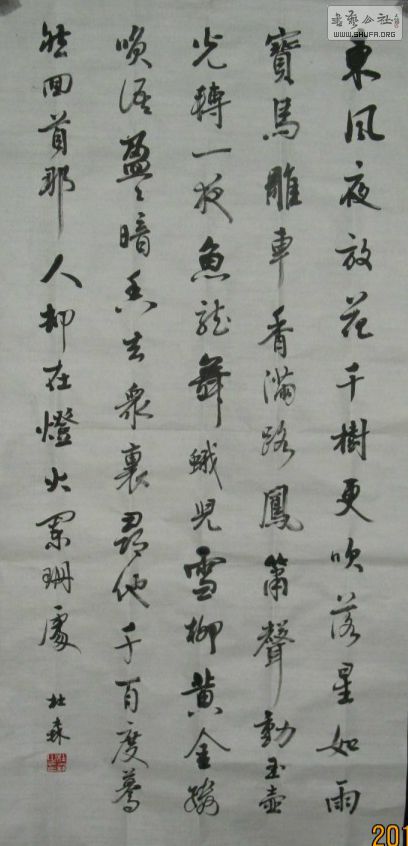 東風夜放花千樹更吹落星如雨
寶馬雕車香滿路鳳箫聲動玉壺
光轉一夜魚龍舞蛾兒雪柳黄金縷
唤語盈〻暗香去衆裏尋他千百度驀
然回首那人却在燈火闌珊處
杜森
書藝公社
WWW.SHUFA.ORG
201